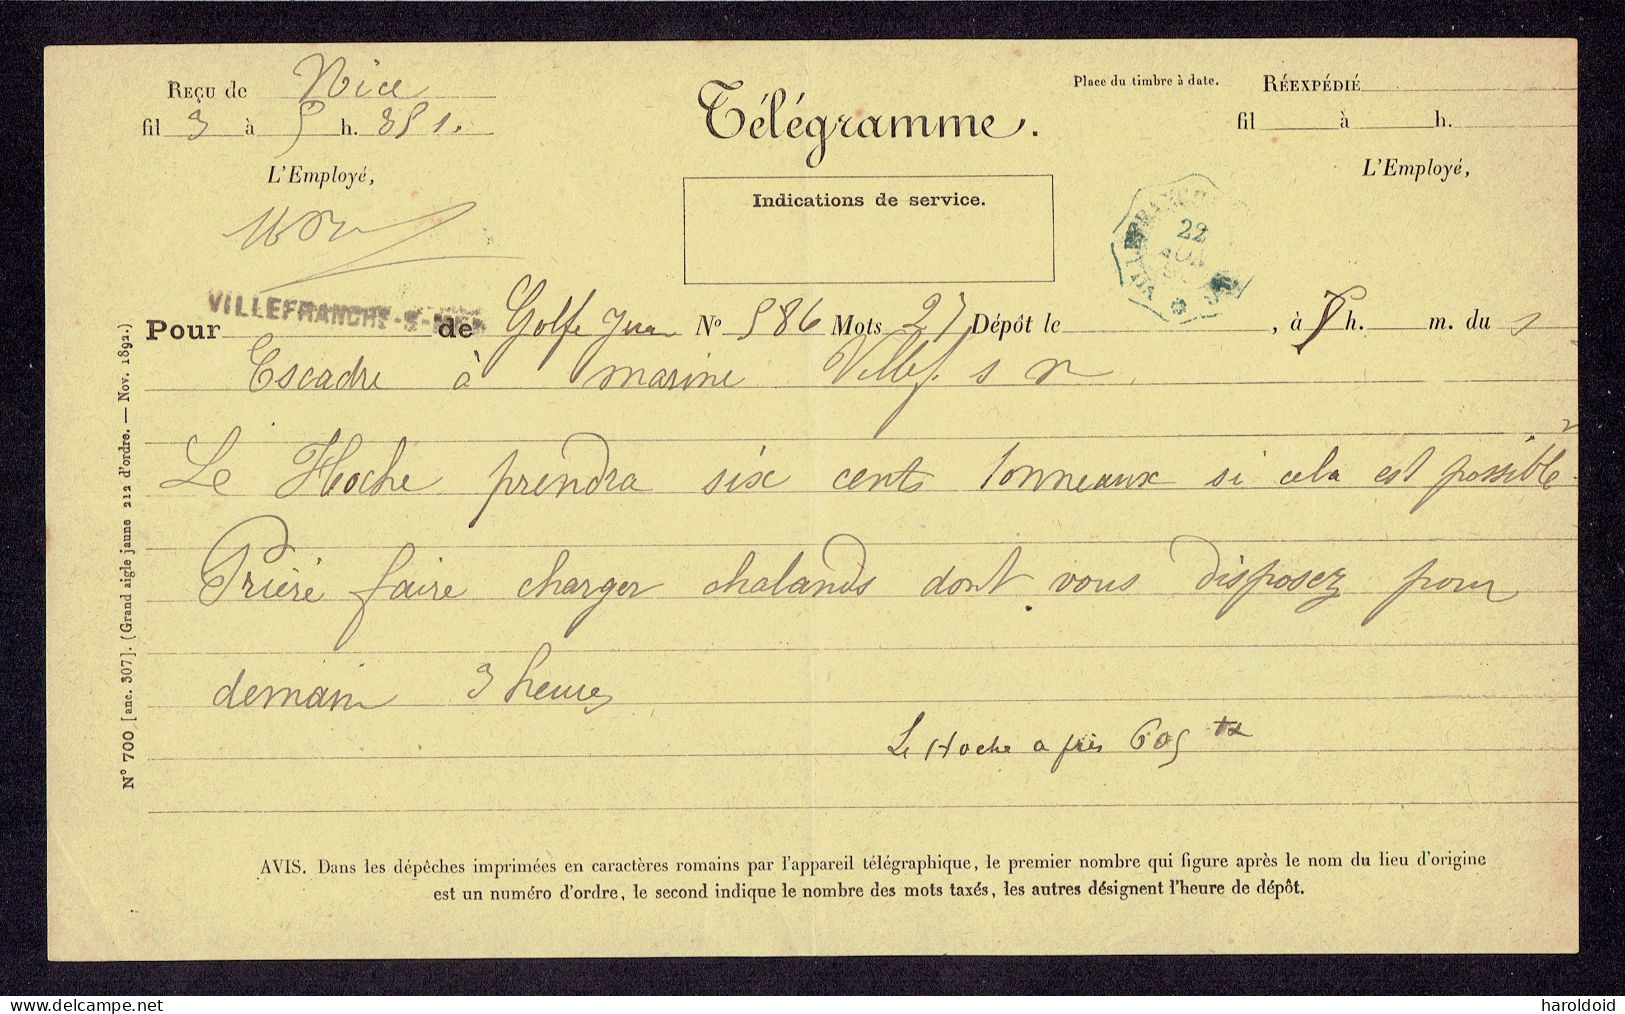 Reçu de Nice
fil 3 à 5 h. 35 s.
L'Employé,
Télégramme.
Indications de service.
Place du timbre à date.
RÉEXPÉDIÉ
fil à h.
L'Employé,
VILLEFRANCHE-S-MER
22
Pour de Golfe Juan No 586 Mots 27 Dépôt le , à 5 h. m. du s
Escadre à marine Villef. s m
Le Hoche prendra six cents tonneaux si cela est possible
Prière faire charger chalands dont vous disposez pour
demain 3 heures
Le Hoche a pris 605 tx
AVIS. Dans les dépêches imprimées en caractères romains par l'appareil télégraphique, le premier nombre qui figure après le nom du lieu d'origine
est un numéro d'ordre, le second indique le nombre des mots taxés, les autres désignent l'heure de dépôt.
N° 700 [anc. 307]. (Grand aigle jaune 212 d'ordre. — Nov. 1892.)
delcampe.net
haroldoid